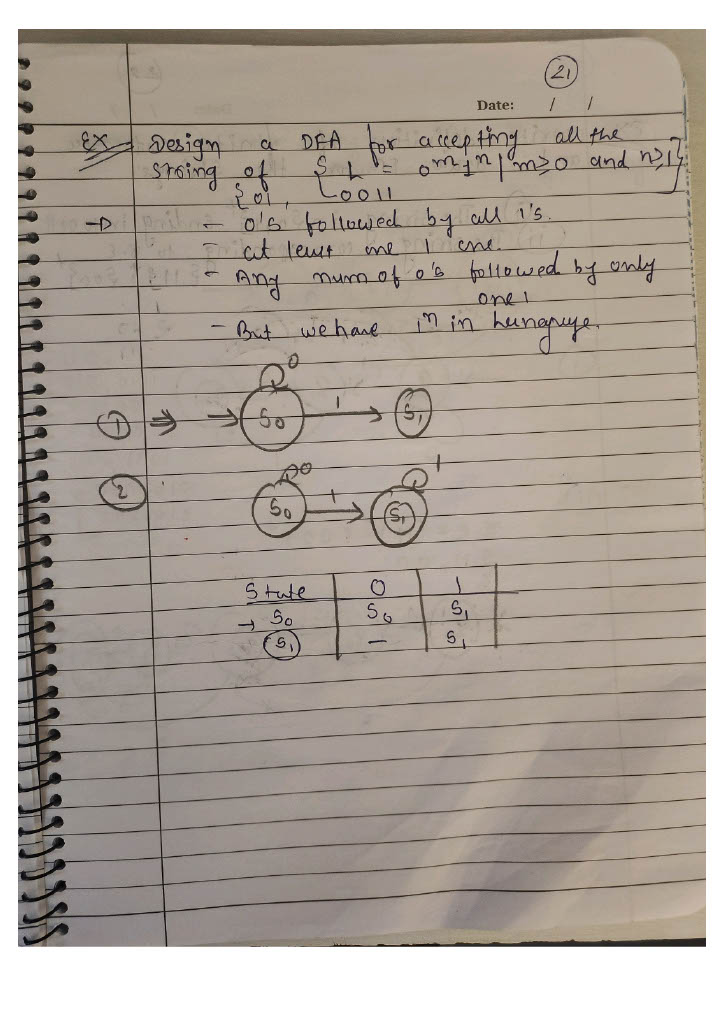 21
Date: / /
EX Design a DFA for accepting all the
stoing of { L = 0^m 1^n | m≥0 and n≥1}
{01, 0011
→ - 0's followed by all 1's.
- at least one 1 one.
- Any num of 0's followed by only
one 1
- But we have 1^n in
0
1 ⇒ → S0 1 S1
0 1
2 S0 1 S1
State 0 1
→ S0 S0 S1
S1 - S1